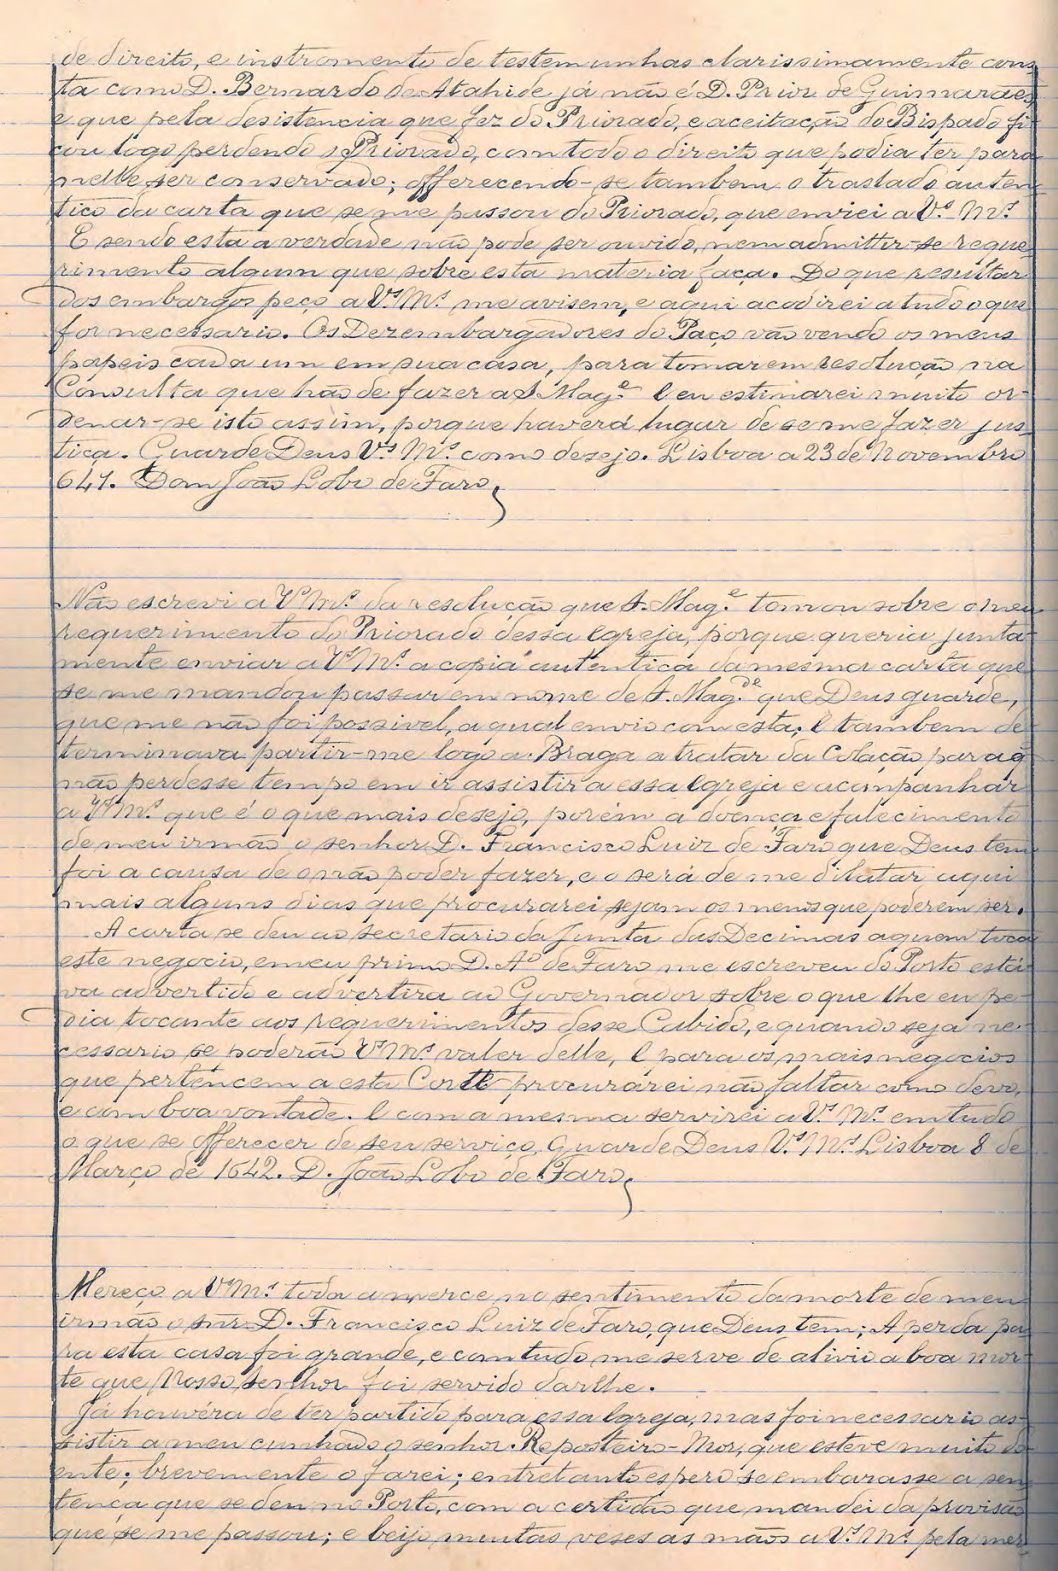 de direito, e instromento de testemunhas clarissimamente cons
ta como D. Bernardo de Atahide já não é D. Prior de Guimarães
e que pela desistencia que fez do Priorado, e aceitação do Bispado fi
cou logo perdendo o Priorado, com todo o direito que podia ter para
nelle ser conservado; offerecendo-se tambem o traslado auten
tico da carta que se me passou do Priorado, que enviei a V.s M.s
E sendo esta a verdade não pode ser ouvido, nem admittir-se reque
rimento algum que sobre esta materia faça. Do que resultar
dos embargos peço a V.s M.s me avisem, e aqui acodirei a tudo o que
for necessario. Os Dezembargadores do Paço vão vendo os meus
papeis cada um em sua casa, para tomarem resolução na
Consulta que hão de fazer a S Mag.e E eu estimarei muito or-
denar-se isto assim, porque haverá lugar de se me fazer jus
tiça. Guarde Deus V.s M.s como desejo. Lisboa a 23 de Novembro
641. Dom João Lobo de Faro
Não escrevi a V.s M.s da resolução que S. Mag.e tomou sobre o meu
requerimento do Priorado dessa Igreja, porque queria junta-
mente enviar a V.s M.s a copia autentica da mesma carta que
se me mandou passar em nome de S. Mag.de que Deus guarde,
que me não foi possivel, a qual envio com esta; E tambem de
terminava partir-me logo a Braga a tratar da Colação para q
não perdesse tempo em ir assistir a essa Igreja e acompanhar
a V.s M.s que é o que mais desejo, porém a doença e falecimento
de meu irmão o senhor D. Francisco Luiz de Faro que Deus tem
foi a causa de o não poder fazer, e o será de me dilatar aqui
mais alguns dias que procurarei sejam os menos que poderem ser.
A carta se deu ao secretario da Junta das Decimas a quem toca
este negocio, e meu primo D. A.o de Faro me escreveu do Porto está
va advertido e advertira ao Governador sobre o que lhe eu pe-
dia tocante aos requerimentos desse Cabido, e quando seja ne-
cessario se poderão V.s M.s valer delle, E para os mais negocios
que pertencem a esta Corte procurarei não faltar como devo,
e com boa vontade. E com a mesma servirei a V.s M.s em tudo
o que se offerecer de seu serviço, Guarde Deus V.s M.s Lisboa 8 de
Março de 1642. D. João Lobo de Faro
Mereço a V.s M.s toda a merce, no sentimento da morte de meu
irmão o snr. D. Francisco Luiz de Faro, que Deus tem; A perda pa
ra esta casa foi grande, e com tudo me serve de alivio a boa mor-
te que Nosso Senhor foi servido darlhe.
Já houvéra de ter partido para essa Igreja, mas foi necessario as-
sistir a meu cunhado o senhor Reposteiro-Mor, que esteve muito do
ente; brevemente o farei; entretanto espero se embarasse a sen
tença que se deu no Porto, com a certidão que mandei da provisão
que se me passou; e beijo muitas veses as mãos a V.s M.s pela mer